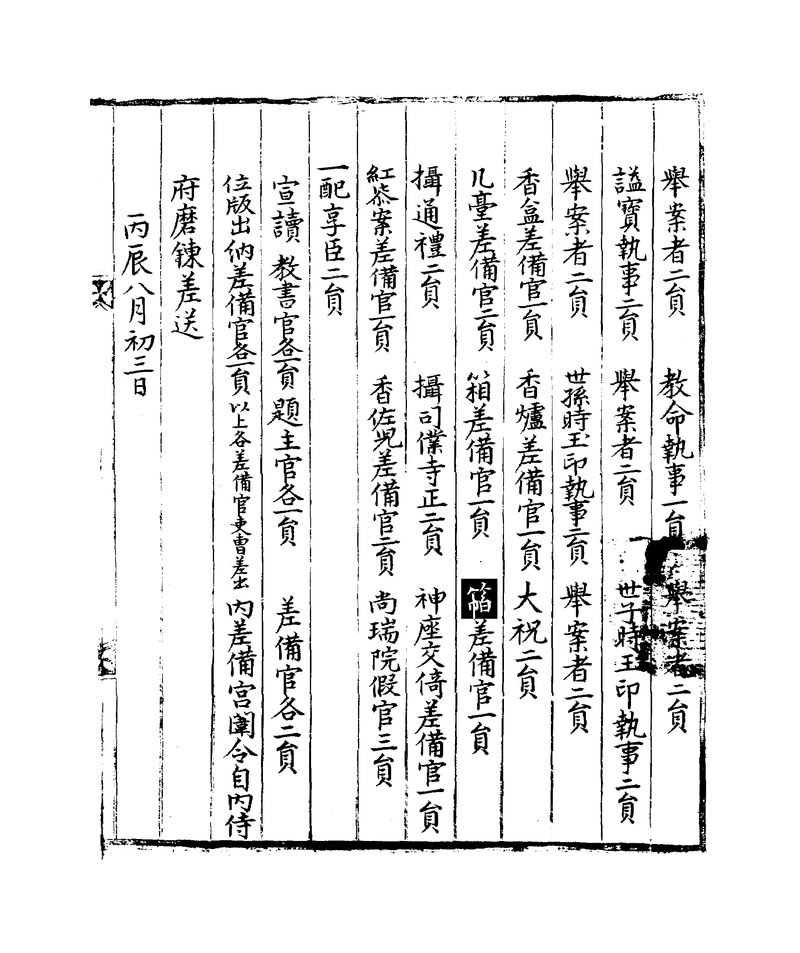 舉案者二員　教命執事一員　舉案者二員
謚寶執事二員　舉案者二員　世子時玉印執事二員
舉案者二員　世孫時玉印執事二員　舉案者二員
香盒差備官一員　香爐差備官一員　大祝二員
几臺差備官二員　箱差備官一員　差備官一員
攝通禮二員　攝司僕寺正二員　神座交倚差備官一員
紅紊案差備官一員　香佐兒差備官二員　尚瑞院假官三員
一配享臣二員
宣讀教書官各一員　題主官各一員　差備官各二員
位版出納差備官各一員以上各差備官吏曹差出　內差備宮闈令自內侍
府磨鍊差送
丙辰八月初三日